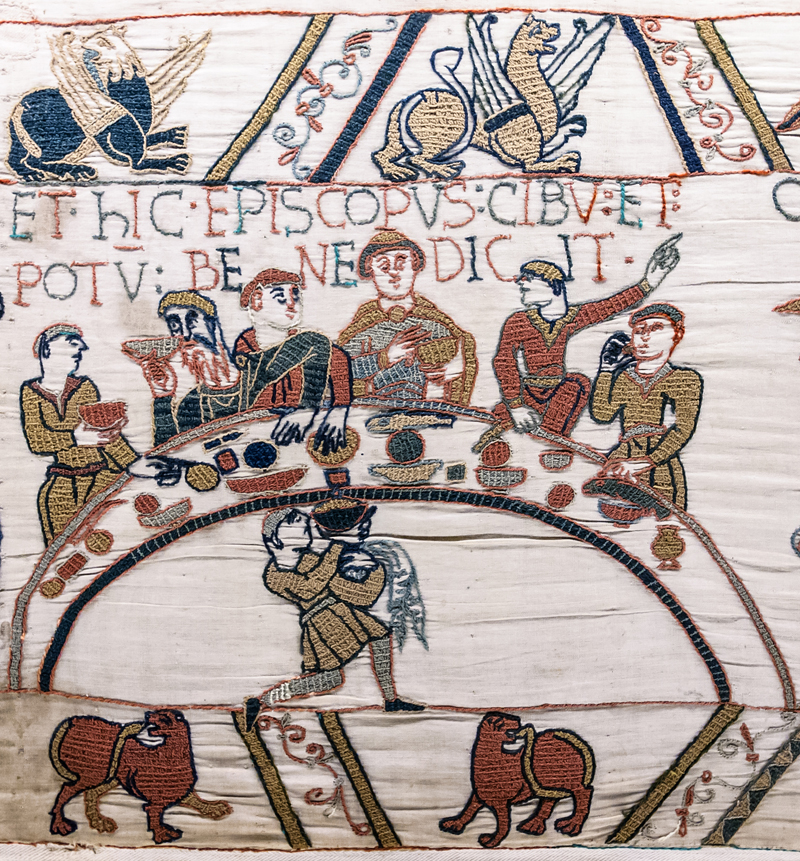 ET· hIC· EPISCOPVS: CIBV: ET:
POTV: BENEDICIT·